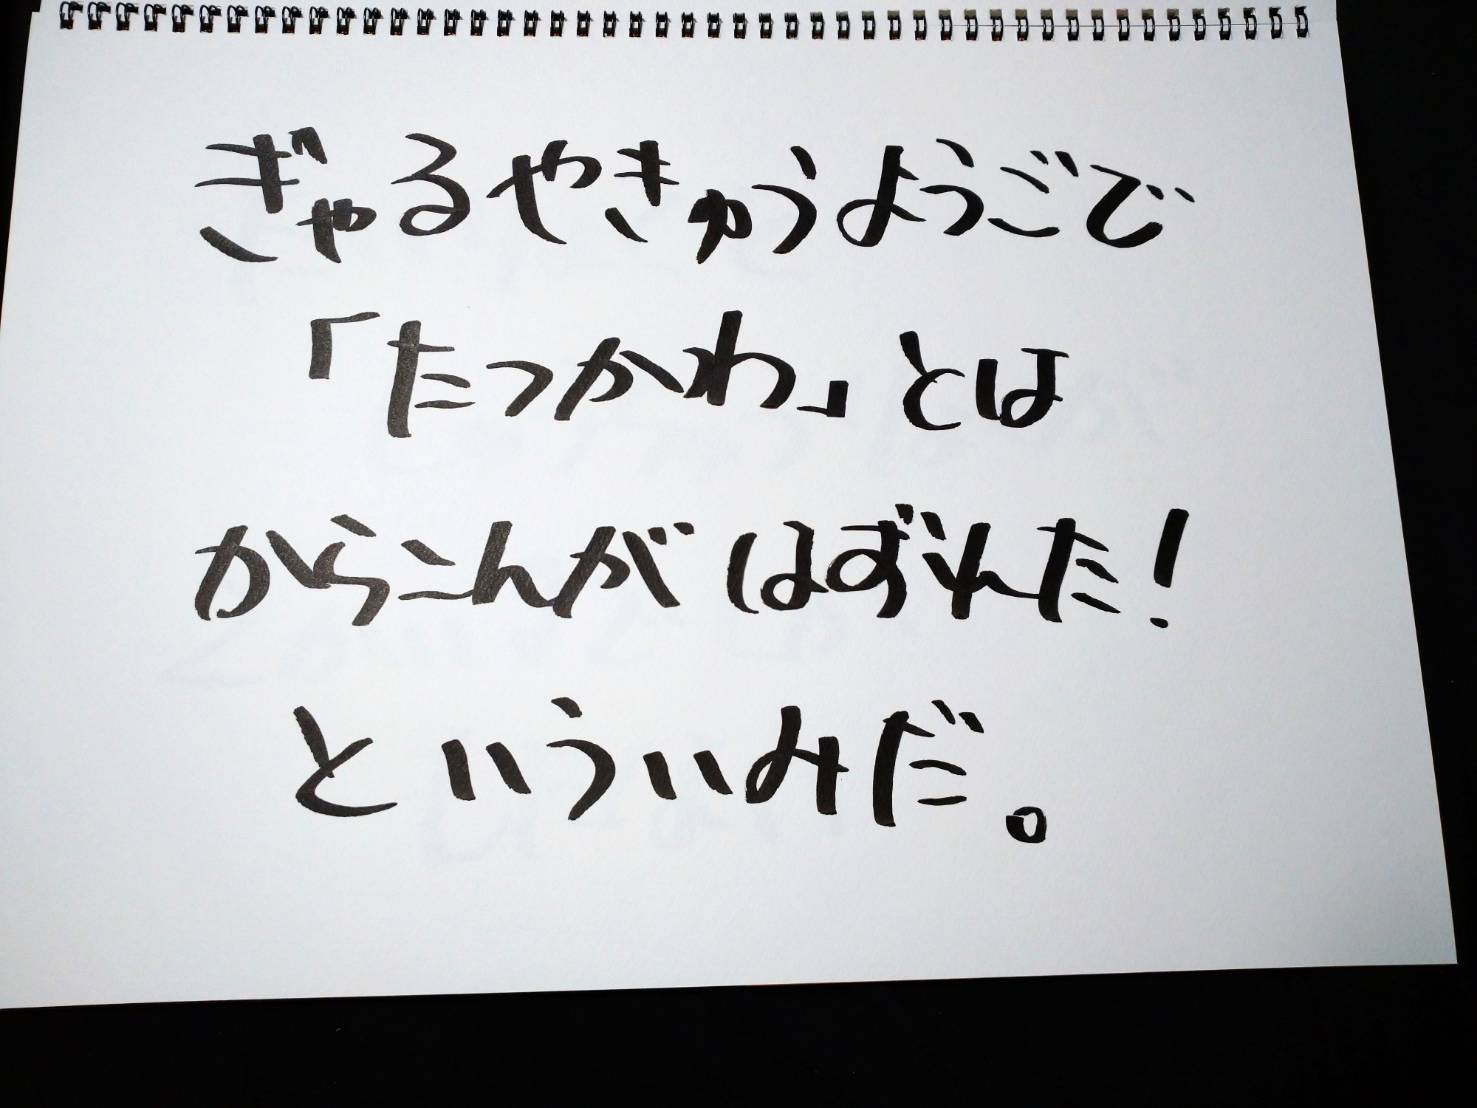 ぎゃるやきゅうようごで
「たつかわ」とは
からこんがはずれた!
といういみだ。